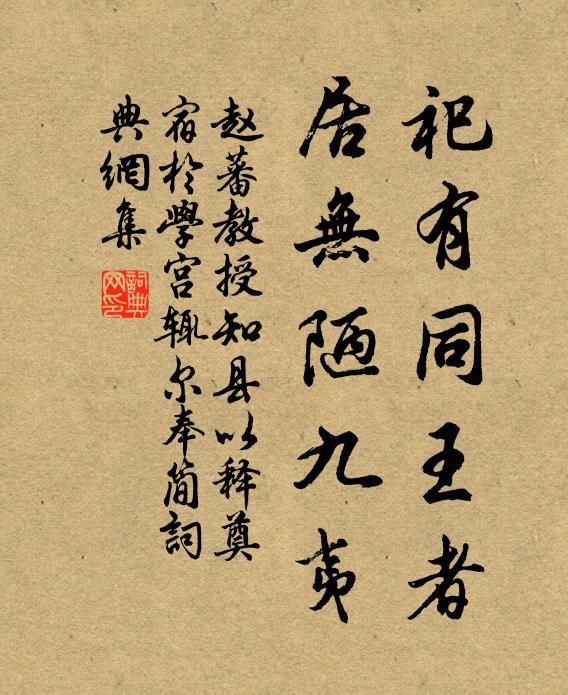 祀有同王者
居無陋九夷
赵蕃教授知县以释奠
宿於學宫辄尔奉簡詞
典網集
詞典
网印